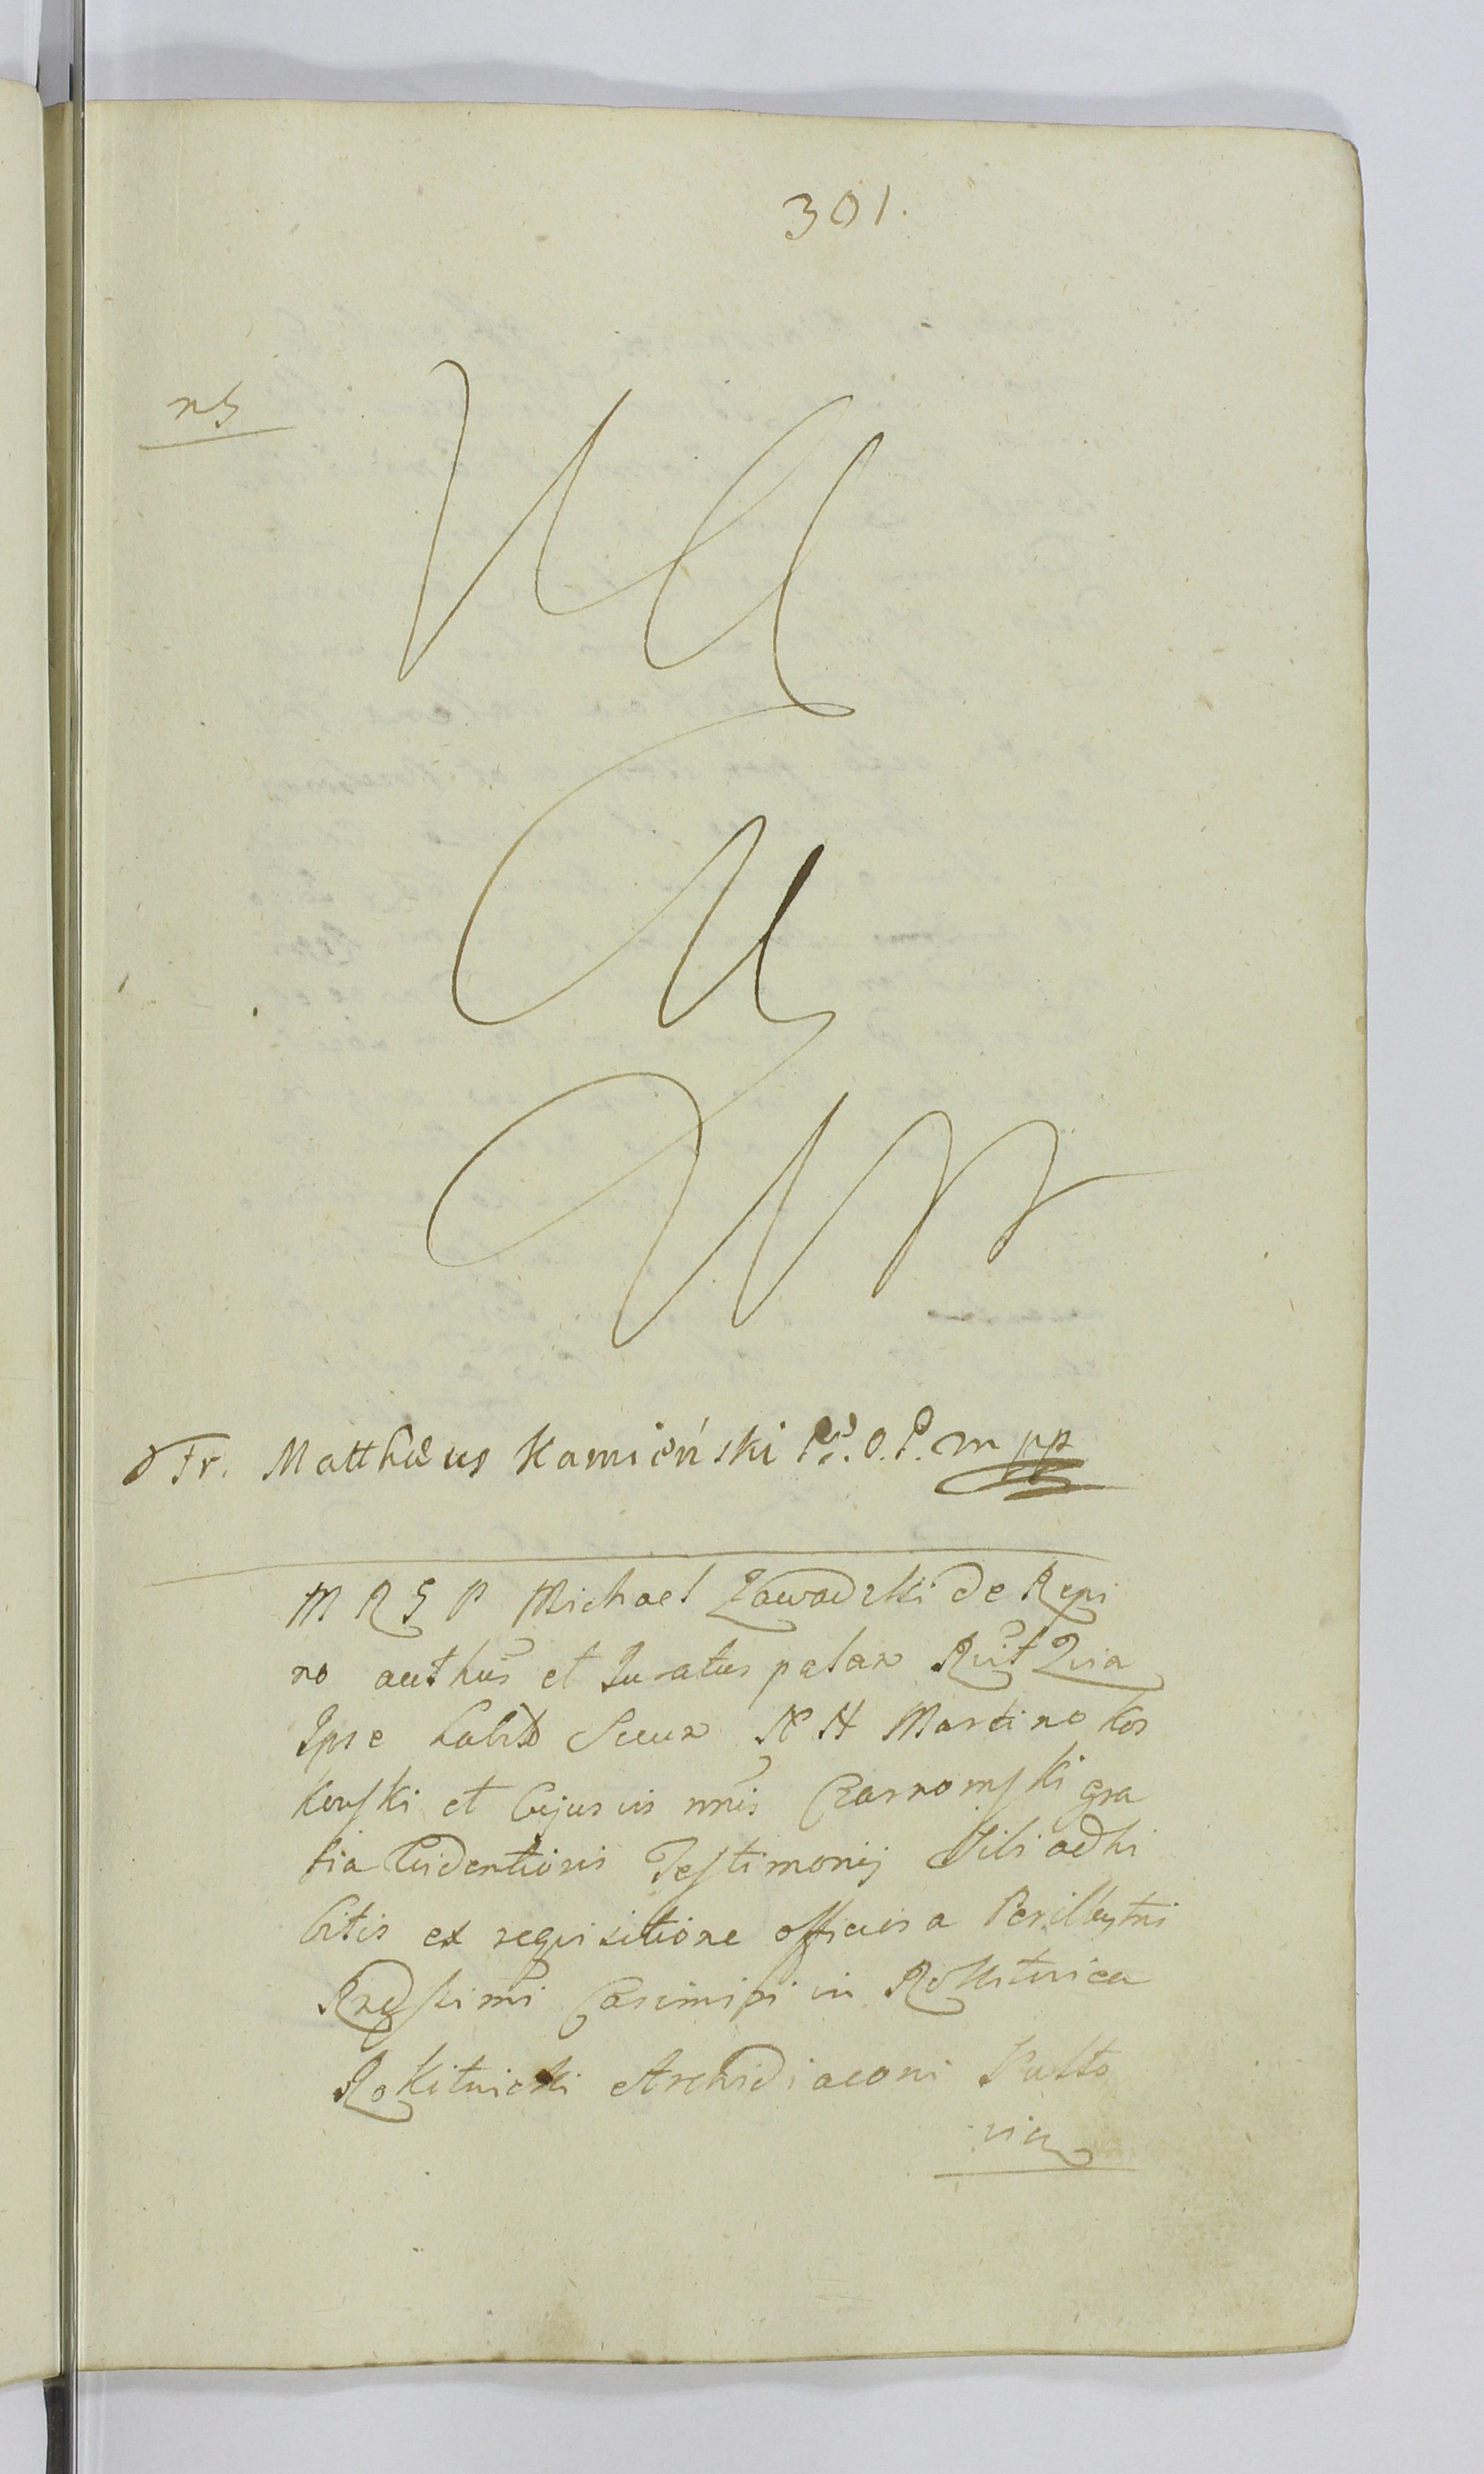 301.
nb
Fr. Matthæus Kamiéński O. P. mpp
M R G P Michael Zawadzki de Repi
no auth̃us et Juratus palam Rit̃ Quia
Ipse habitis Secum N N Martino Kos
kowski et Cujusvis nr̃is Czarnomski gra
tia Evidentioris Testimonij Sibi adhi
bitis ex requisitione officiosa Perillustri
Rndssimi Casimiri in Rokitnica
Rokitnicki Archidiaconi Pulto
vien